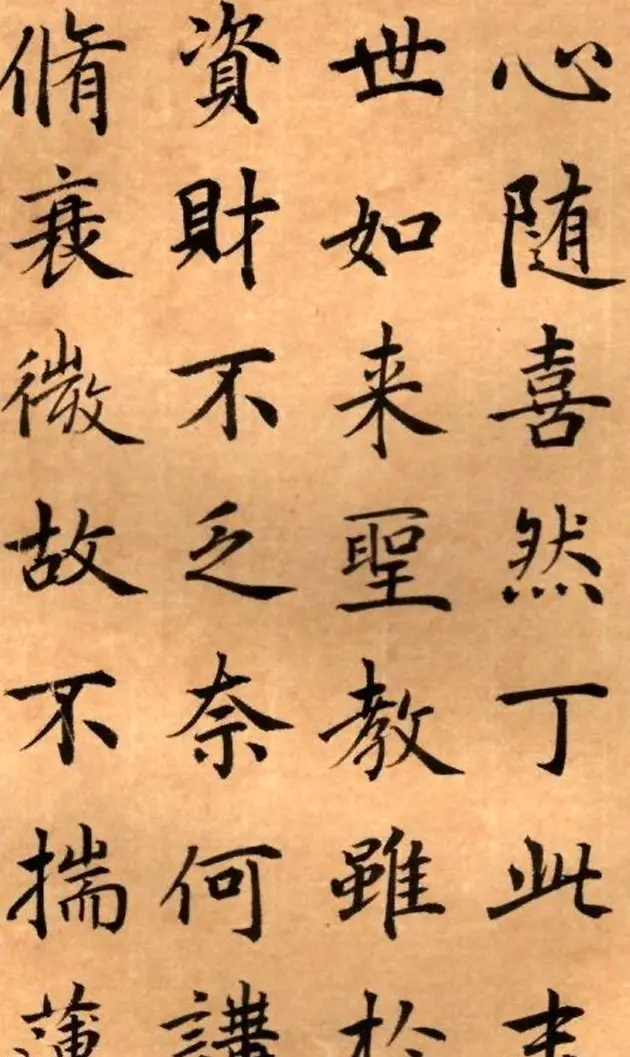 心随喜然丁此末
世如来聖教雖於
資財不乏奈何講
脩衰微故不揣薄